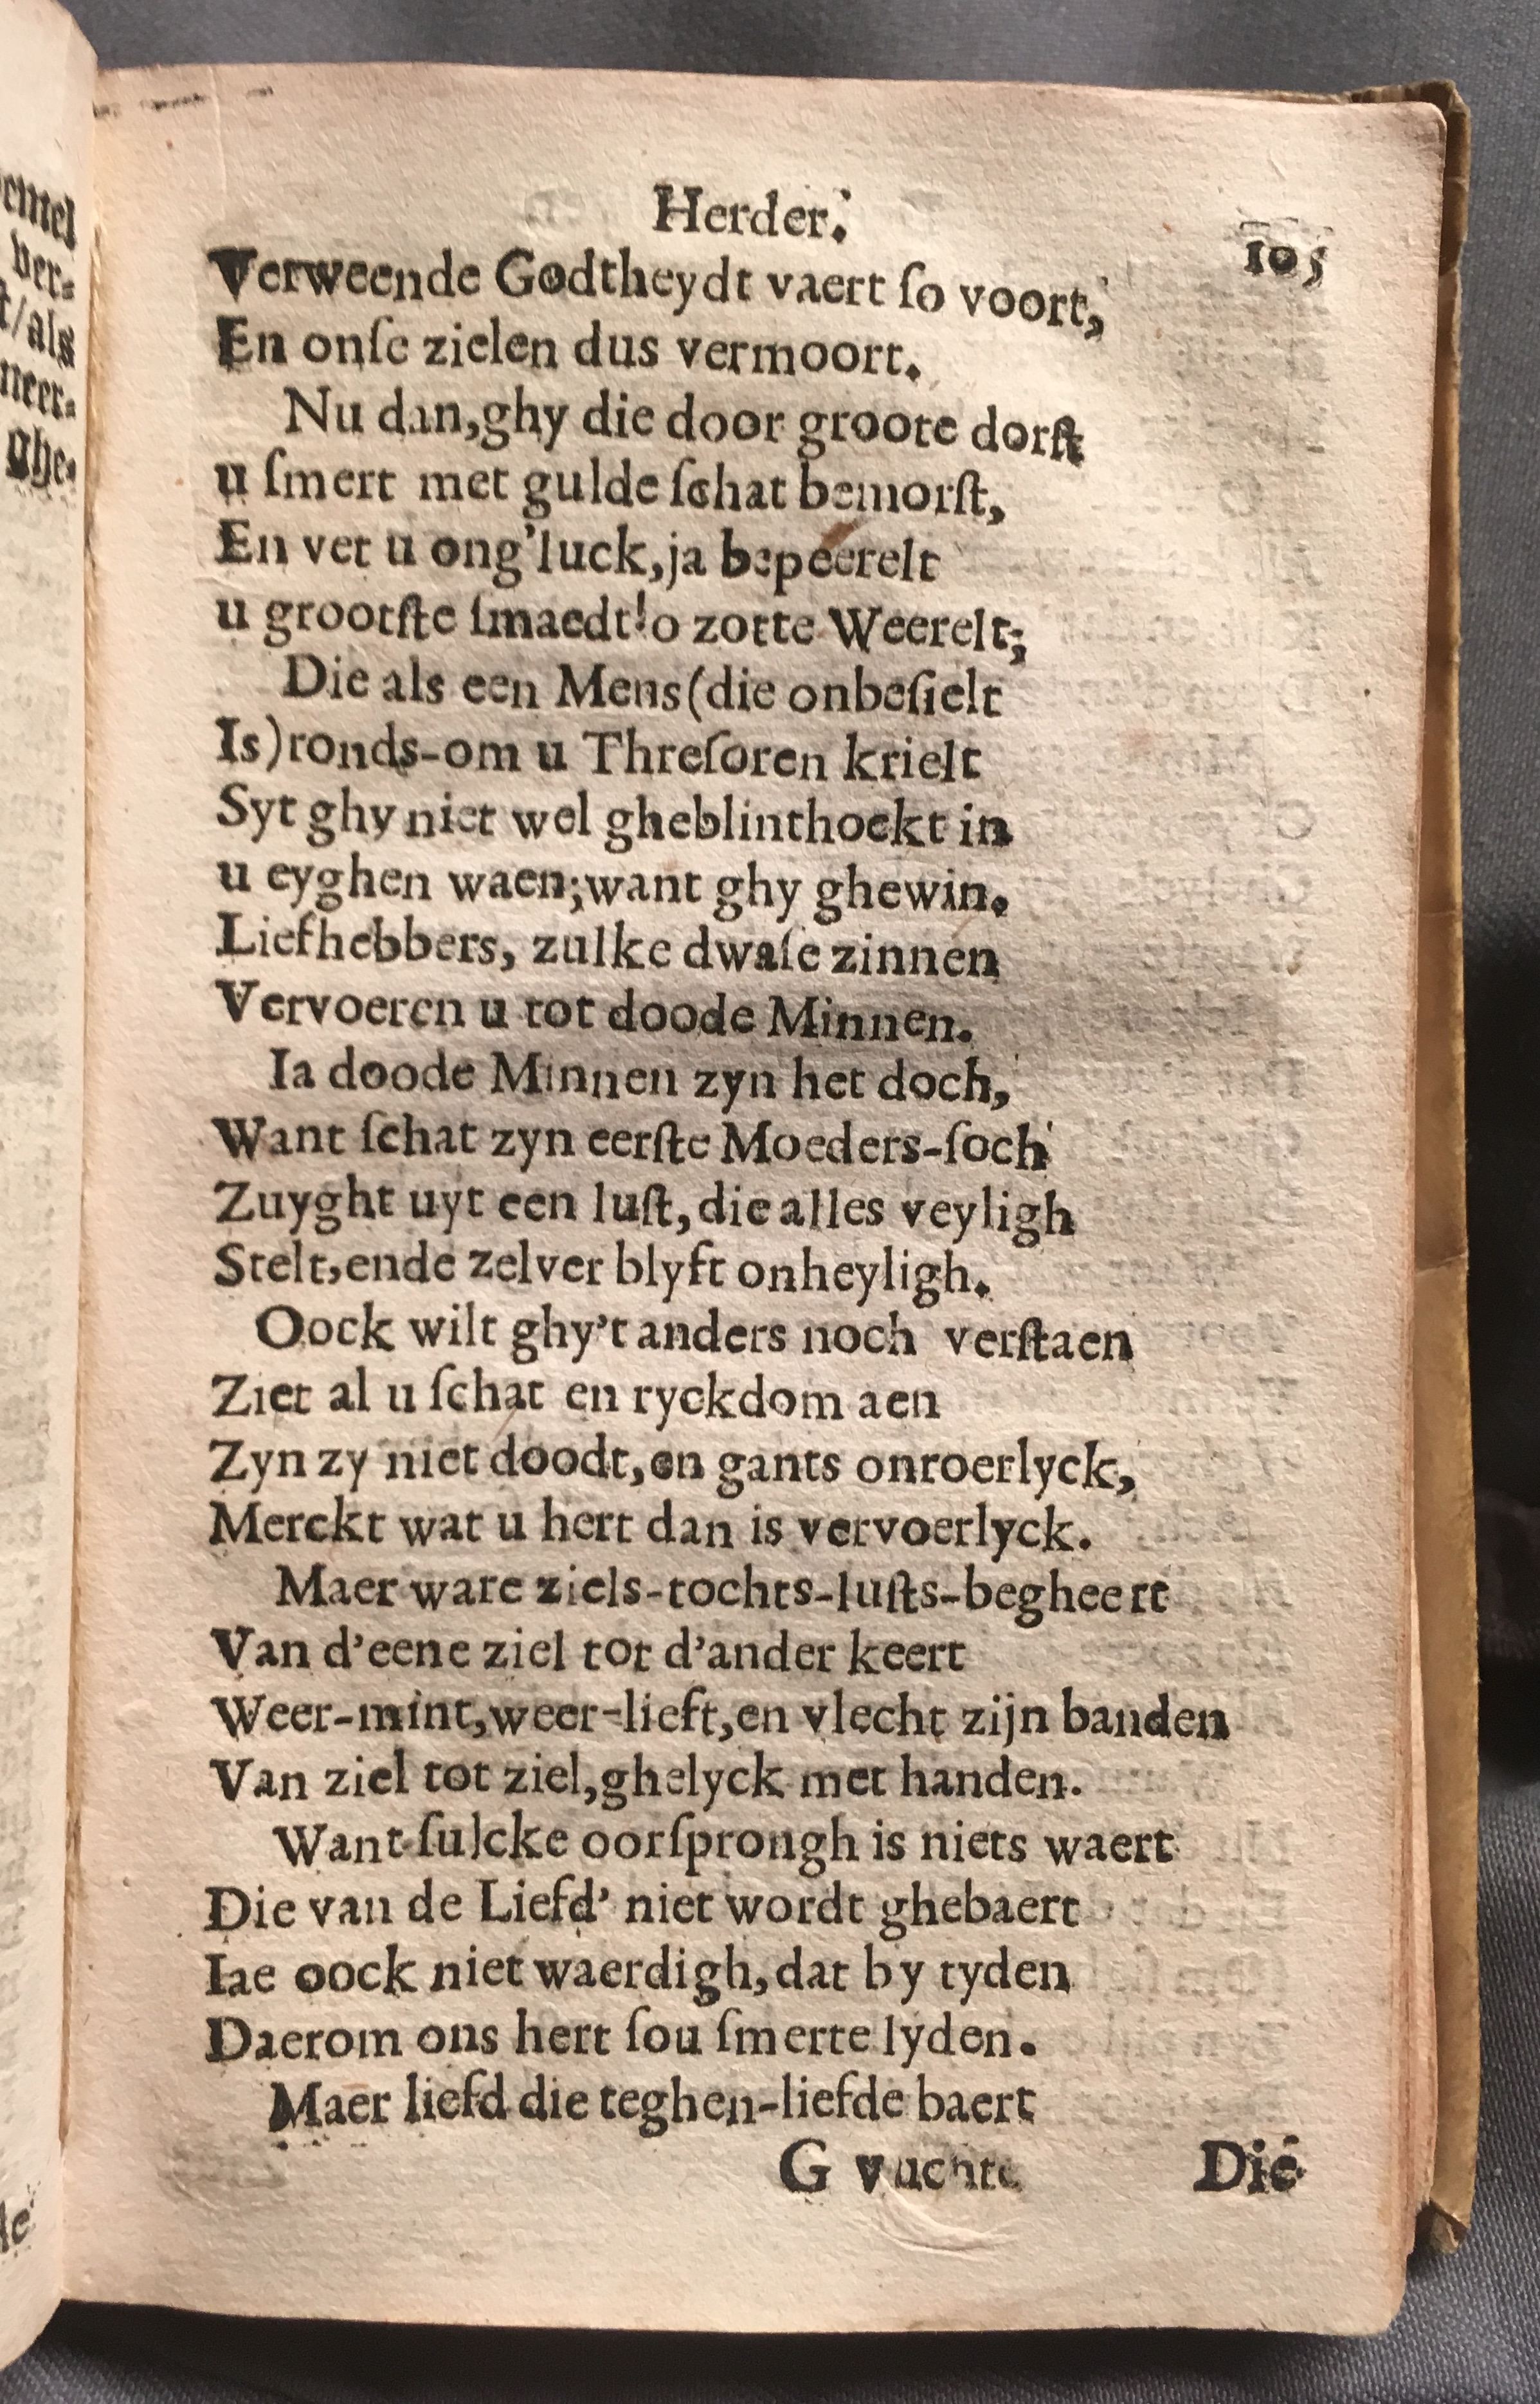 Herder.
105
Verweende Godtheydt vaert ſo voort,
En onſe zielen dus vermoort.
Nu dan,ghy die door groote dorſt
u ſmert met gulde ſchat bemorſt,
En vet u ong'luck,ja bepeerelt
u grootſte ſmaedt!o zotte Weerelt;
Die als een Mens(die onbeſielt
Is)ronds-om u Threſoren krielt
Syt ghy niet wel gheblinthoekt in
u eyghen waen;want ghy ghewin.
Liefhebbers, zulke dwaſe zinnen
Vervoeren u tot doode Minnen.
Ia doode Minnen zyn het doch,
Want ſchat zyn eerſte Moeders-ſoch
Zuyght uyt een luſt,die alles veyligh
Stelt,ende zelver blyft onheyligh.
Oock wilt ghy't anders noch verſtaen
Ziet al u ſchat en ryckdom aen
Zyn zy niet doodt,en gants onroerlyck,
Merckt wat u hert dan is vervoerlyck.
Maer ware ziels-tochts-luſts-begheert
Van d'eene ziel tot d'ander keert
Weer-mint,weer-lieft,en vlecht zijn banden
Van ziel tot ziel,ghelyck met handen.
Want ſulcke oorſprongh is niets waert
Die van de Liefd' niet wordt ghebaert
Iae oock niet waerdigh,dat by tyden
Daerom ons hert ſou ſmerte lyden.
Maer liefd die teghen-liefde baert
G vuchte Die
emel
ver-
t/als
neer-
ghe-